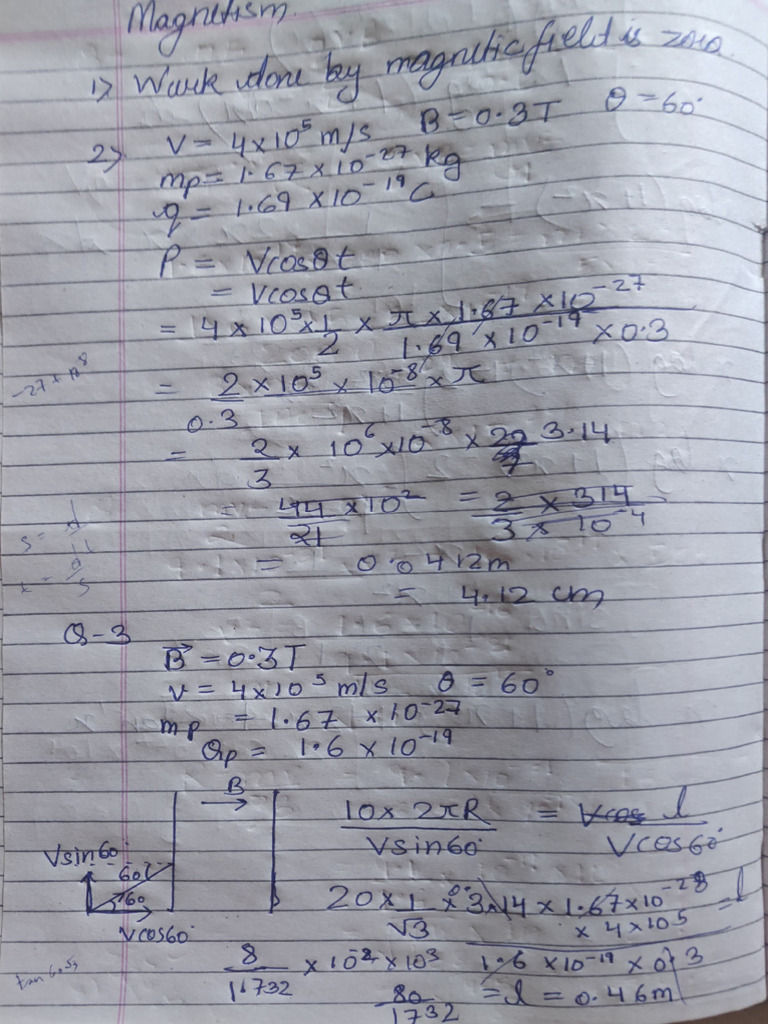 Magnetism.
1> Work done by magnetic field is zero
2> V = 4×10⁵ m/s B = 0.3T θ = 60°
mp = 1.67 × 10⁻²⁷ kg
q = 1.69 × 10⁻¹⁹ C
P = Vcosθt
= Vcosθt
= 4 × 10⁵ × 1/2 × π × 1.67 × 10⁻²⁷ / 1.69 × 10⁻¹⁹ × 0.3
= 2 × 10⁵ × 10⁻⁸ × π / 0.3
= 2/3 × 10⁶ × 10⁻⁸ × 3.14
= 44/21 × 10² = 2 × 314 / 3 × 10⁻⁴
= 0.0412m
= 4.12 cm
Q-3
B⃗ = 0.3T
v = 4×10⁵ m/s θ = 60°
mp = 1.67 × 10⁻²⁷
Qp = 1.6 × 10⁻¹⁹
B
10 × 2πR / Vsin60° = l / Vcos60°
Vsin60°
60°
60
Vcos60°
20 × 1/√3 × 3.14 × 1.67 × 10⁻²⁸ × 4×10⁵ / 1.6 × 10⁻¹⁹ × 0.3 = l
8/1.732 × 10⁻² × 10³
80/1732 = l = 0.46m